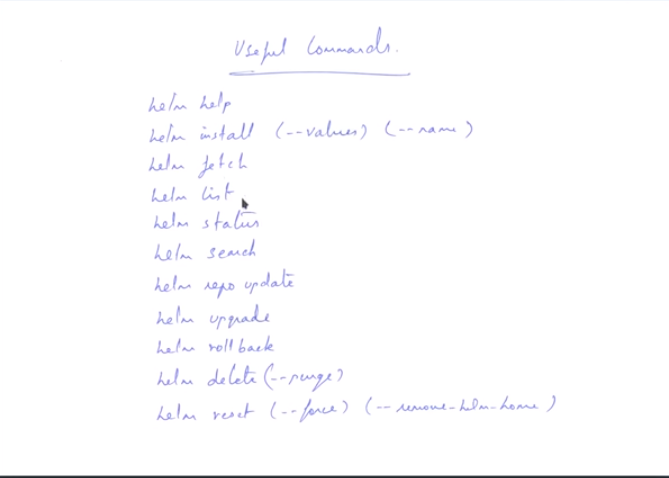 Useful Commands.
helm help
helm install (--values) (--name)
helm fetch
helm list
helm status
helm search
helm repo update
helm upgrade
helm rollback
helm delete (--purge)
helm reset (--force) (--remove-helm-home)